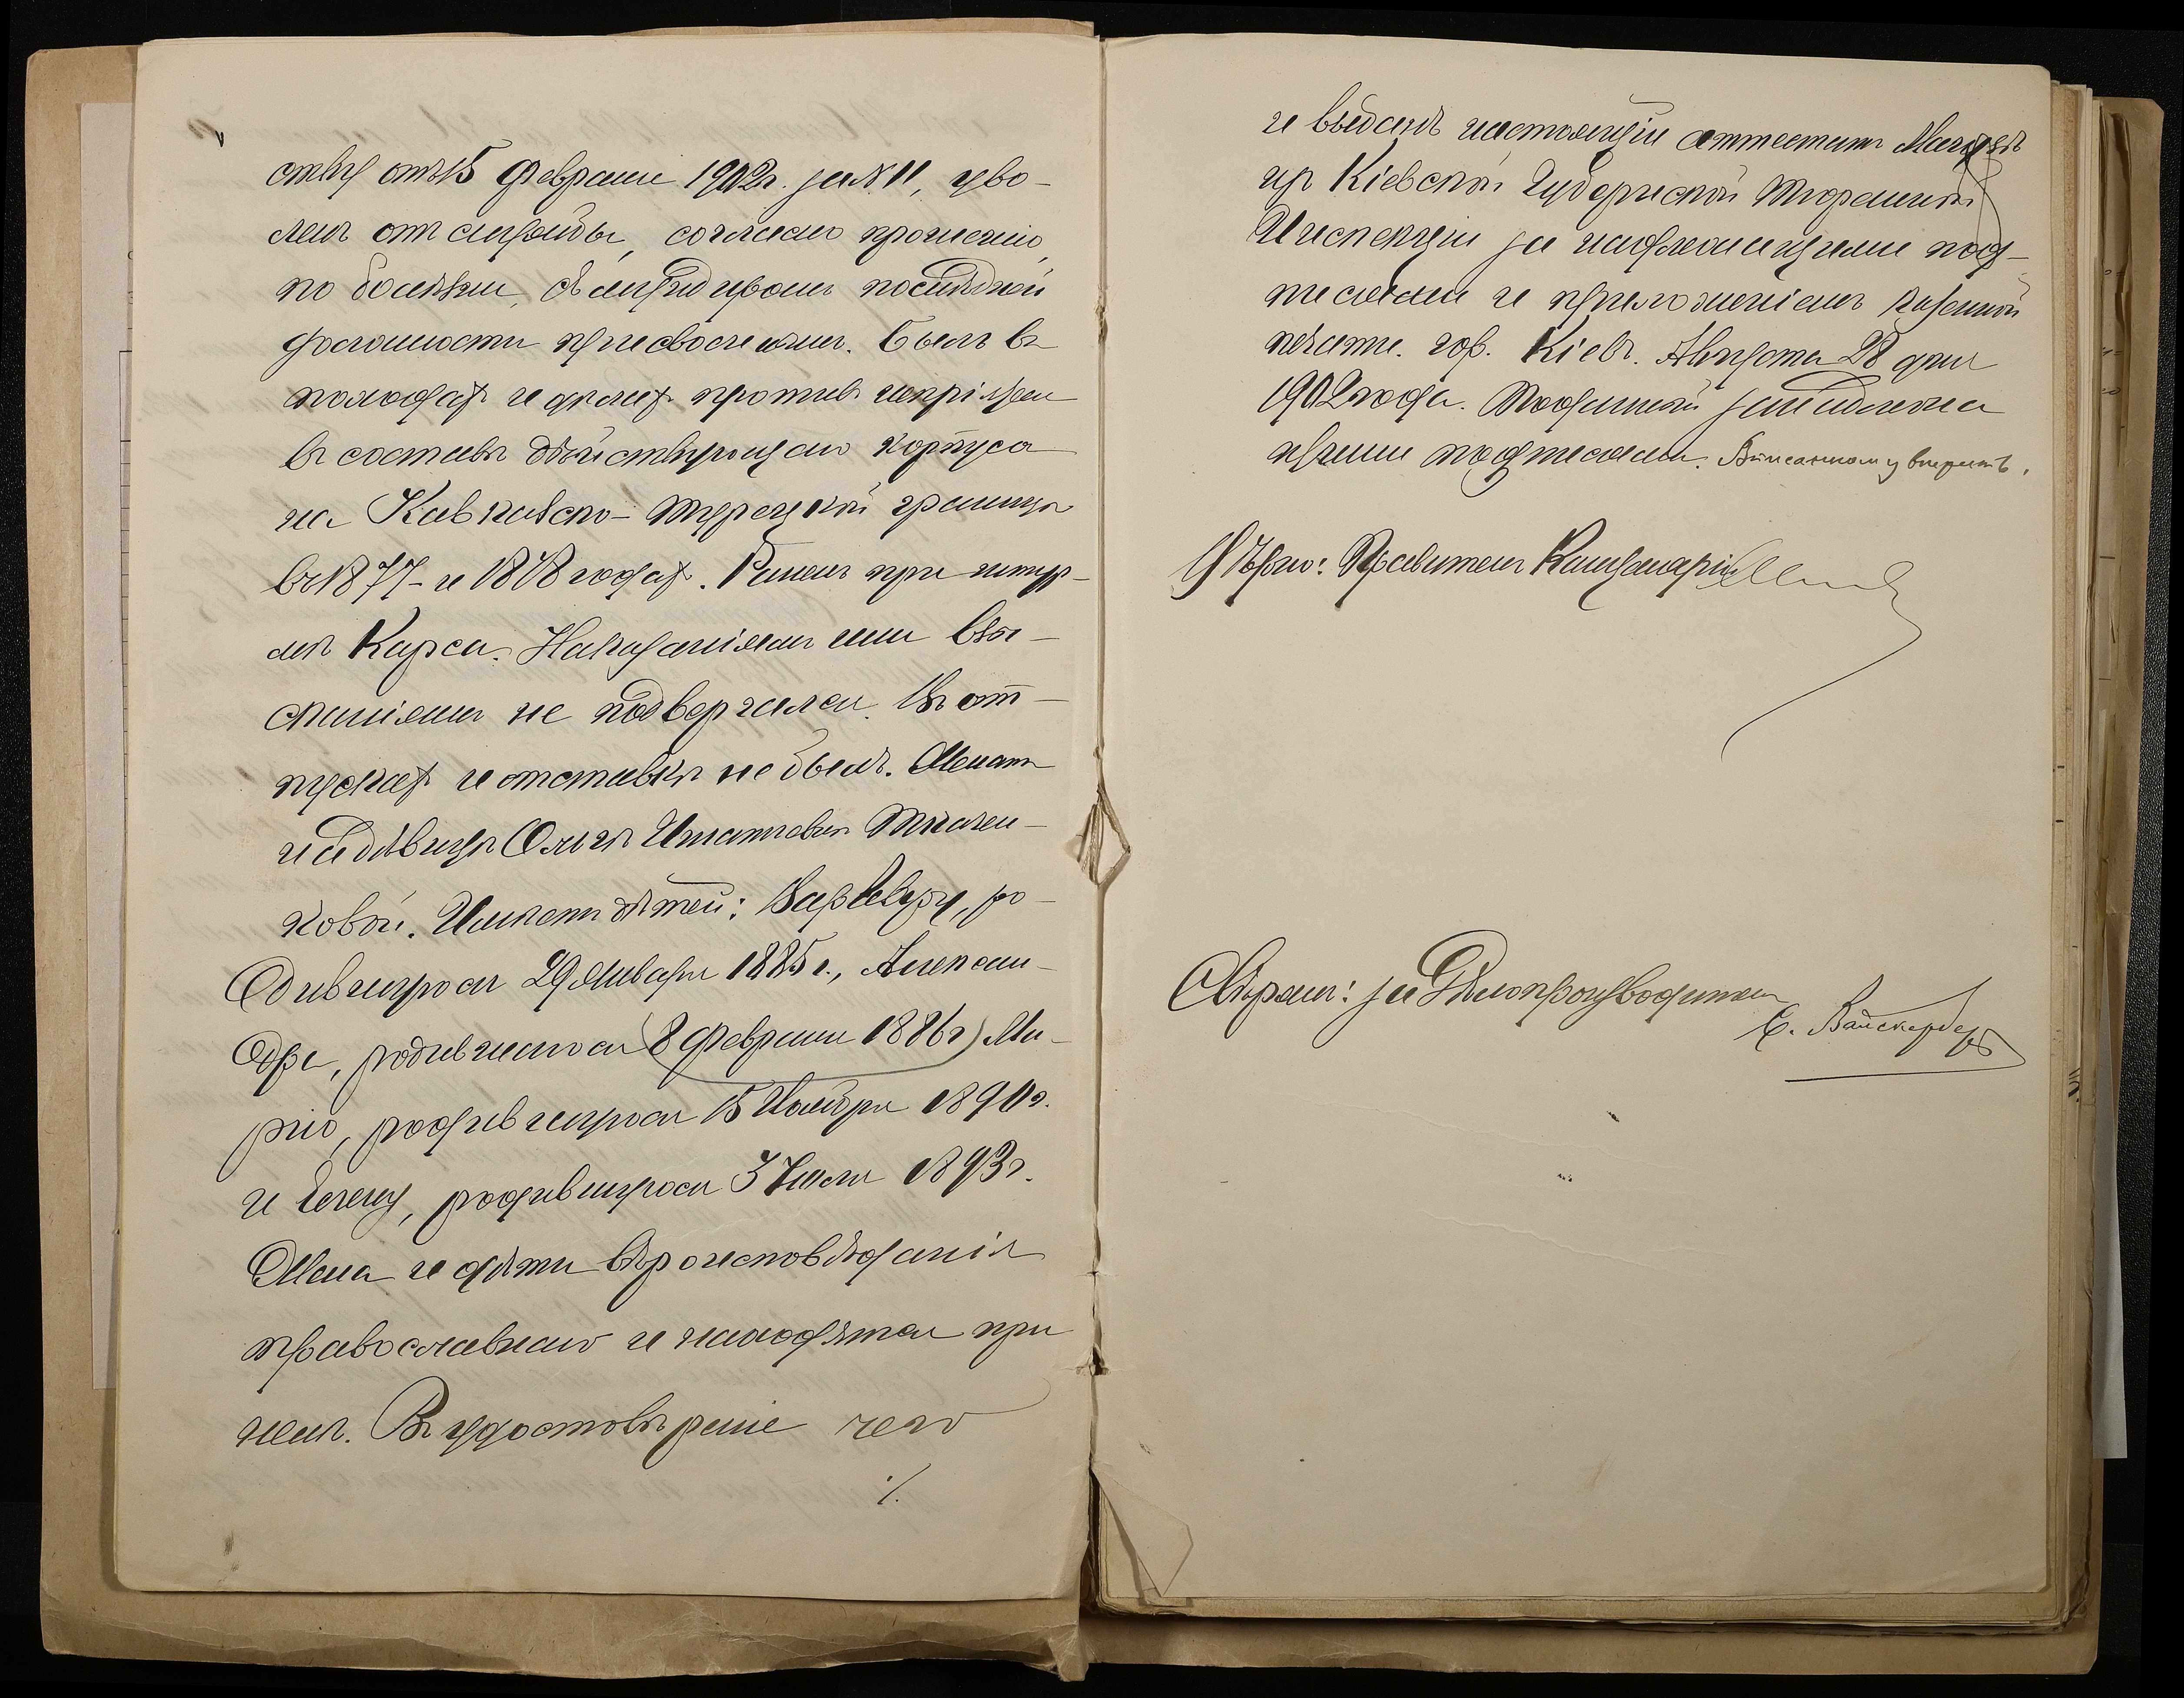 ству отъ 15 Февраля 1902 г. за № 11, уво-
ленъ отъ службы, согласно прошенію,
по болѣзни, съ мундиромъ послѣдней
должности присвоеннымъ. Былъ въ
походахъ и дѣлахъ противъ непріятеля
въ составѣ дѣйствующаго корпуса
на Кавказско-Турецкой границѣ
въ 1877 и 1878 годахъ. Раненъ при штур-
мѣ Карса. Наказаніямъ или взы-
сканіямъ не подвергался. Въ от-
пускахъ и отставкѣ не былъ. Женатъ
на дѣвицѣ Ольгѣ Игнатьевнѣ
ковой. Имѣетъ дѣтей: Варвару, ро-
дившуюся 29 Января 1885 г., Алексан-
дра, родившагося (8 Февраля 1886 г.) Ма-
рію, родившуюся 15 Ноября 1890 г.
и Елену, родившуюся 3 Іюля 1893 г.
Жена и дѣти вѣроисповѣданія
православнаго и находятся при
немъ. Въ удостовѣреніе чего
./.
и выданъ настоящій аттестатъ
изъ Кіевской Губернской Тюремной
Инспекціи за надлежащими под-
писями и приложеніемъ казенной
печати. гор. Кіевъ. Августа 28 дня
1902 года. Подлинный за надлежа-
щими подписями.
Вѣрно: Правитель Канцеляріи
Свѣрялъ: за Дѣлопроизводителя